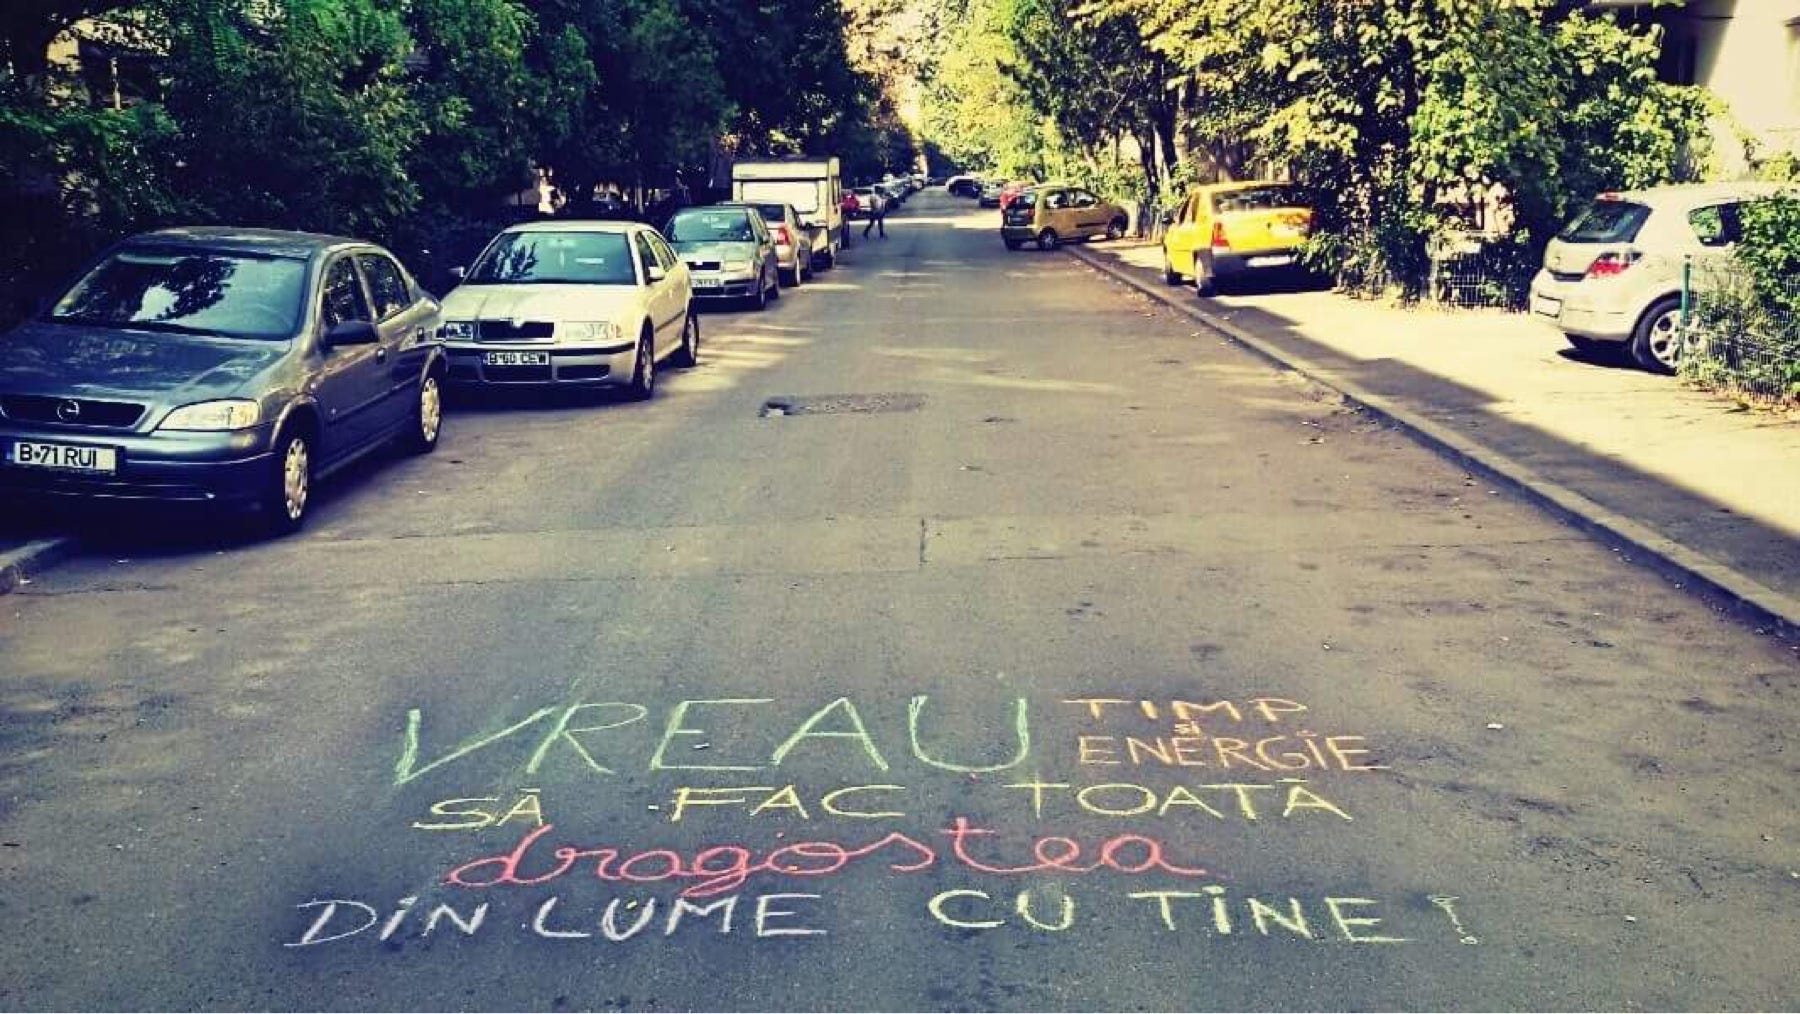 VREAU TIMP
și
ENERGIE
SĂ FAC TOATĂ
dragostea
DIN LUME CU TINE!
B 71 RUI
B 60 CEW